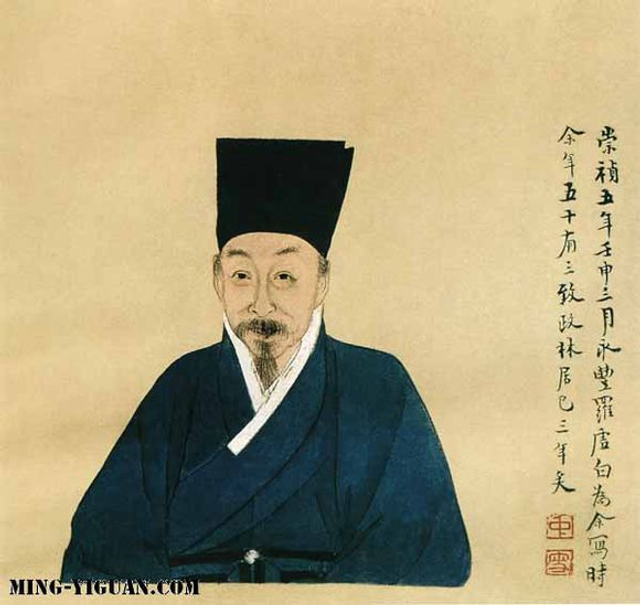 崇禎五年壬申三月永豐羅虛白為余寫時
余年五十有三致政林居已三年矣
MING-YIGUAN.COM